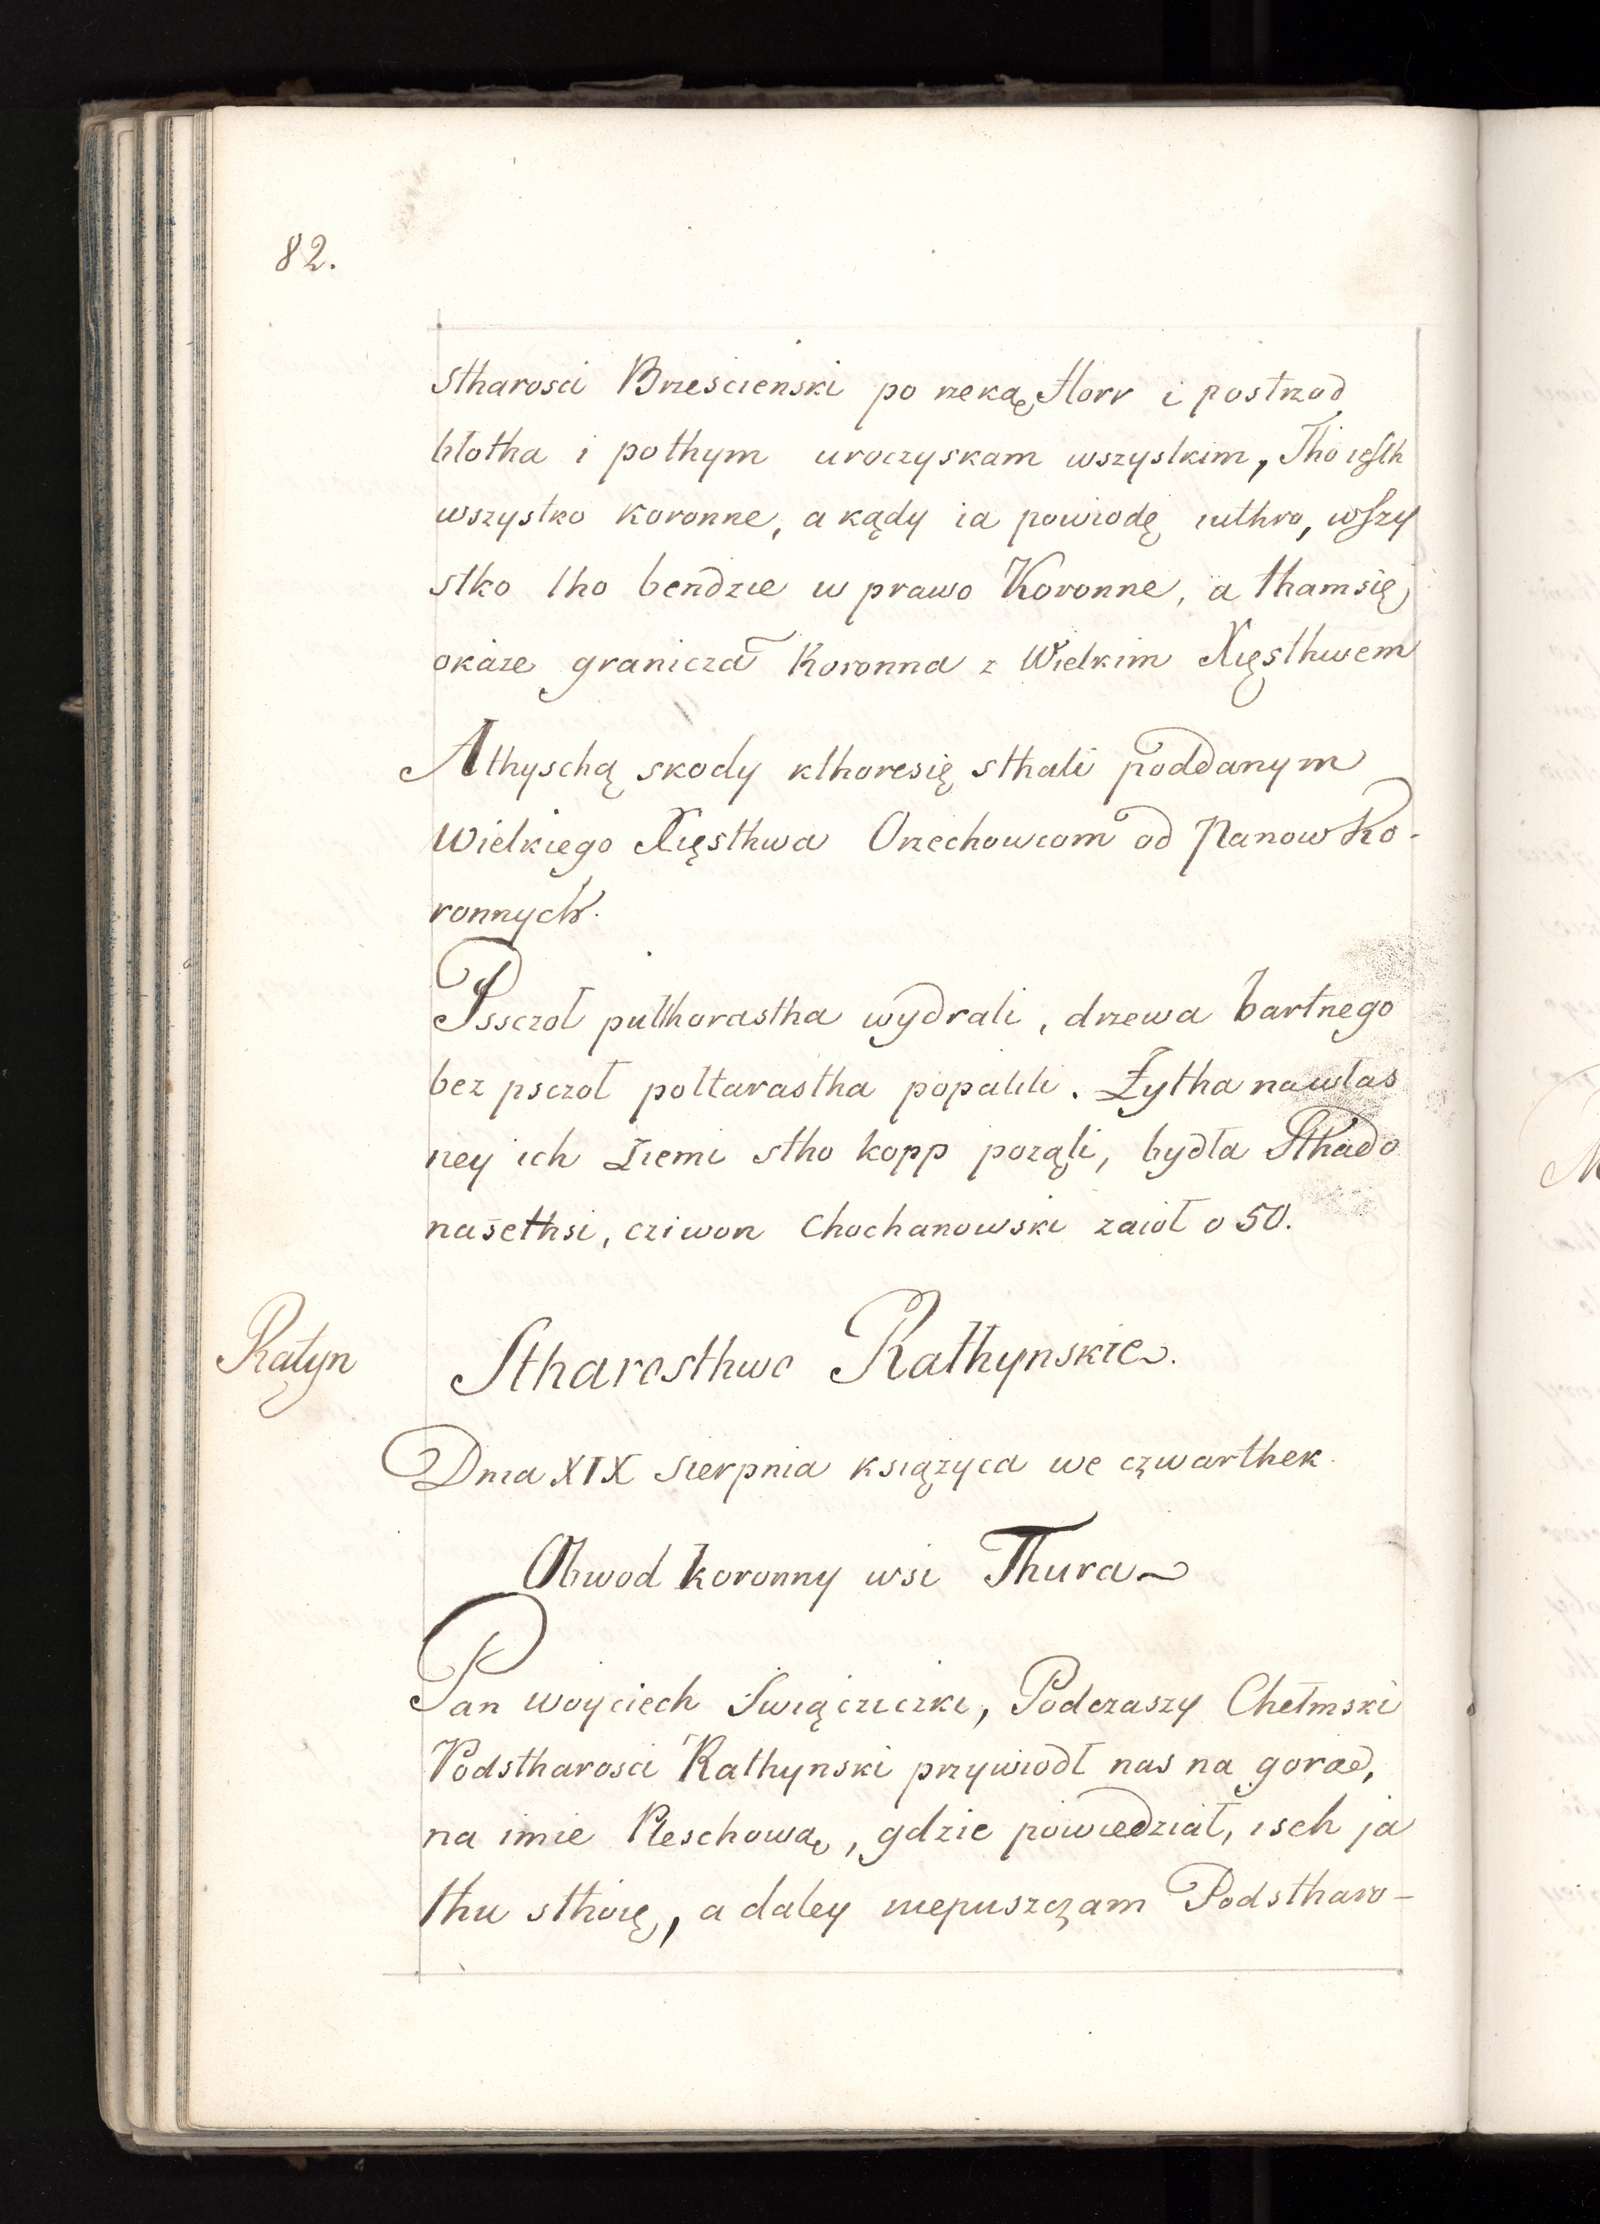 82.
stharosci Brzescienski po rzekąę Horr i postrzod
błotha i pothym uroczyskam wszystkim, Tho iesth
wszystko koronne, a kądy ia powiodę iuthro, wszy
stko tho bendzie w prawo Koronne, a tham się
okaze granicza Koronna z Wielkim Xięsthwem
A thyschą skody kthore się sthali poddanym
Wielkiego Xięsthwa Orzechowcom od Panow Ko-
ronnych.
Pssczoł pulthorastha wydrali, drzewa bartnego
bez psczoł połtarastha popalili. Żytha na włas
ney ich ziemi stho kopp pozązli, bydła Sthado
naszethsi, cziwon Chochanowski zaioł o 50.
Ratyn
Stharosthwo Rathynskie.
Dnia XIX Sierpnia książyca we czwarthek.
Obwod koronny wsi Thura
Pan Woyciech Swiącziczki, Podczaszy Chełmski
Podstharosci Rathynski przywiodł nas na goraę,
na imie Pleschowąę, gdzie powiedział, isch ja
thu sthoię, a daley niepuszczam Podstharo-